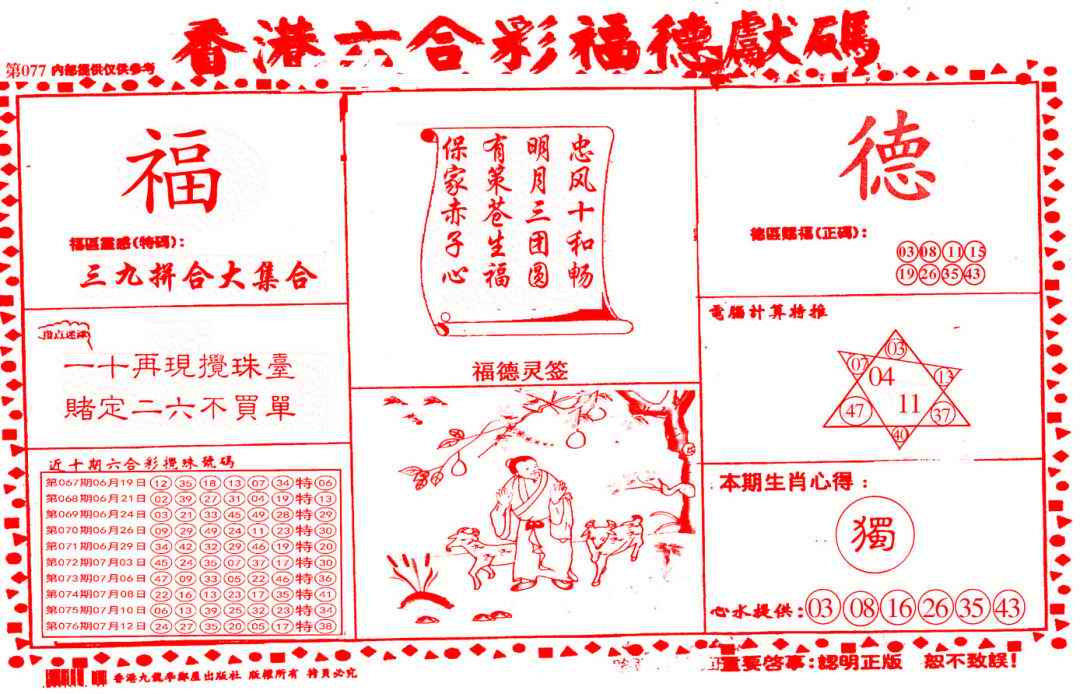 香港六合彩福德獻碼
第077 內部提供仅供參考
福
福區靈感(特碼):
三九拼合大集合
指点迷津
一十再現攪珠臺
賭定二六不買單
近十期六合彩攪珠號碼
第067期06月19日 12 35 18 13 07 34 特 06
第068期06月21日 02 39 27 31 04 19 特 13
第069期06月24日 03 21 33 45 49 28 特 29
第070期06月26日 09 29 49 24 11 23 特 30
第071期06月29日 34 42 32 29 46 19 特 20
第072期07月03日 45 24 35 07 37 17 特 30
第073期07月06日 47 09 33 05 22 46 特 36
第074期07月08日 22 16 13 23 17 35 特 41
第075期07月10日 06 13 39 25 32 23 特 34
第076期07月12日 24 27 35 20 05 17 特 38
忠风十和畅
明月三团圆
有策苍生福
保家赤子心
福德灵签
德
德區賜福(正碼):
03 08 11 15
19 26 35 43
電腦計算特推
03
07 04 13
47 11 37
40
本期生肖心得:
獨
心水提供: 03 08 16 26 35 43
重要啓事:認明正版 恕不致誤!
香港九龍學鄰屋出版社 版權所有 特員必究